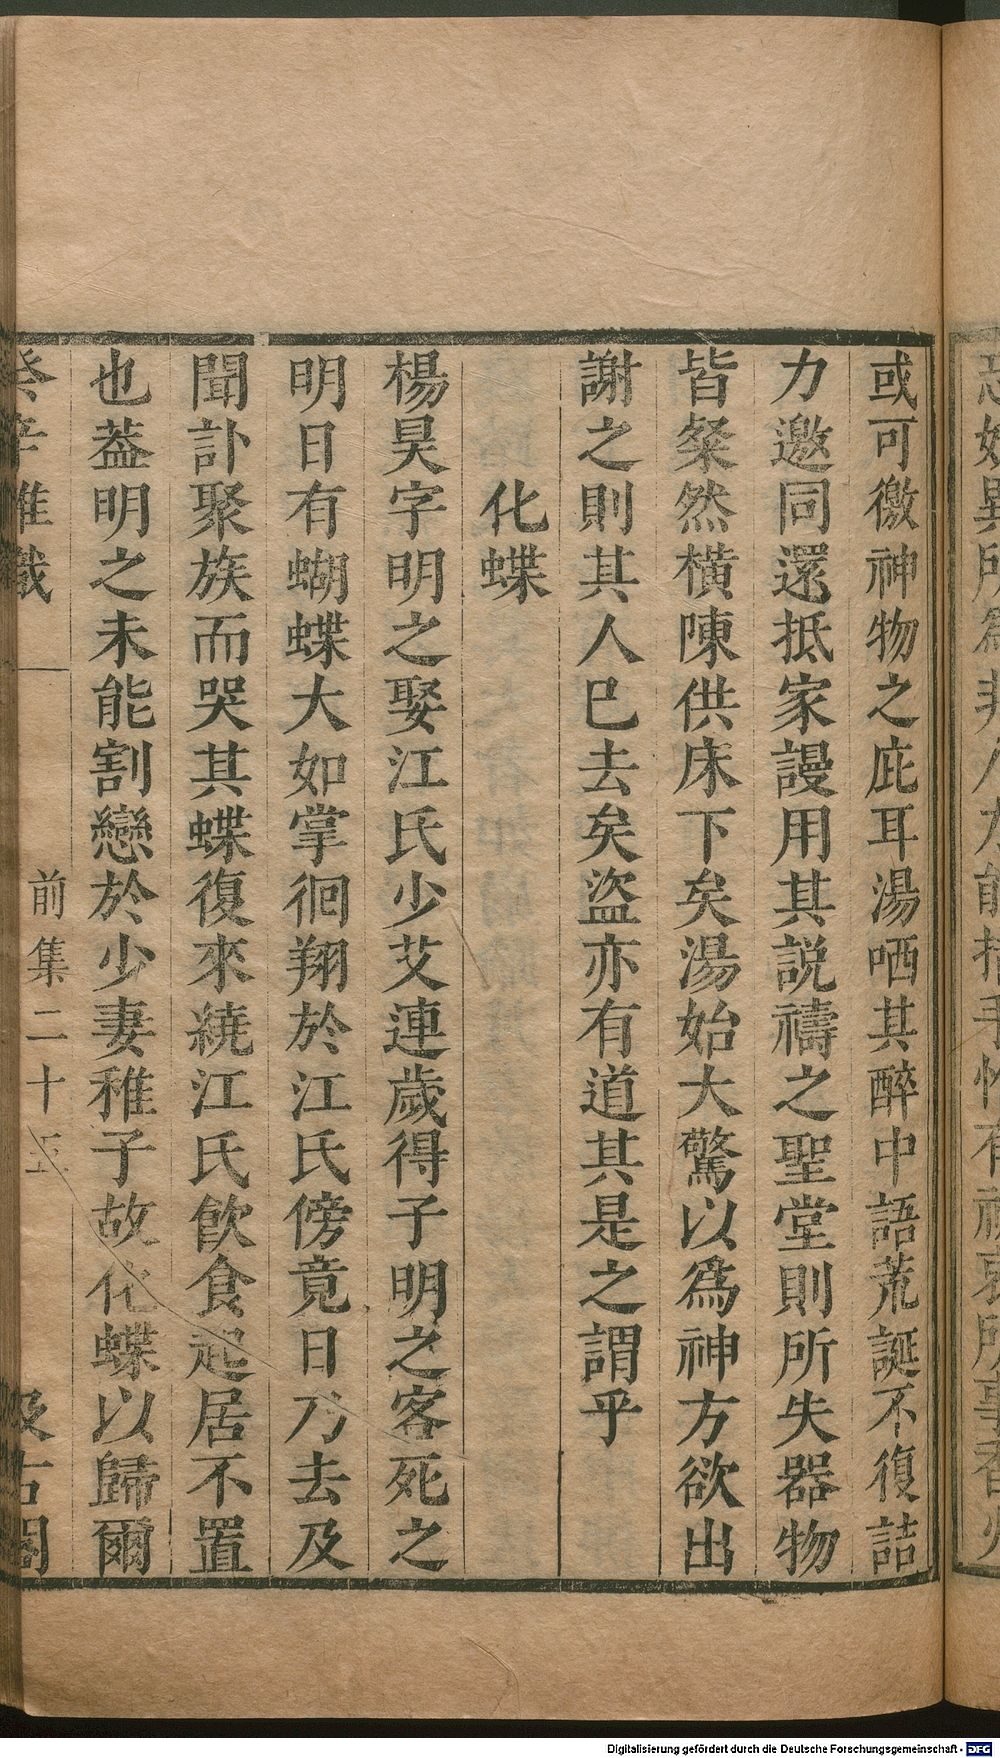 或可徼神物之庇耳湯哂其醉中語荒誕不復詰
力邀同還抵家謾用其説禱之聖堂則所失器物
皆粲然橫陳供床下矣湯始大驚以爲神方欲出
謝之則其人巳去矣盜亦有道其是之謂乎
化蝶
楊昊字明之娶江氏少艾連歲得子明之客死之
明日有蝴蝶大如掌徊翔於江氏傍竟日乃去及
聞訃聚族而哭其蝶復來繞江氏飲食起居不置
也葢明之未能割戀於少妻稚子故化蝶以歸爾
癸辛雜識
前集二十五
汲古閣
Digitalisierung gefördert durch die Deutsche Forschungsgemeinschaft - DFG